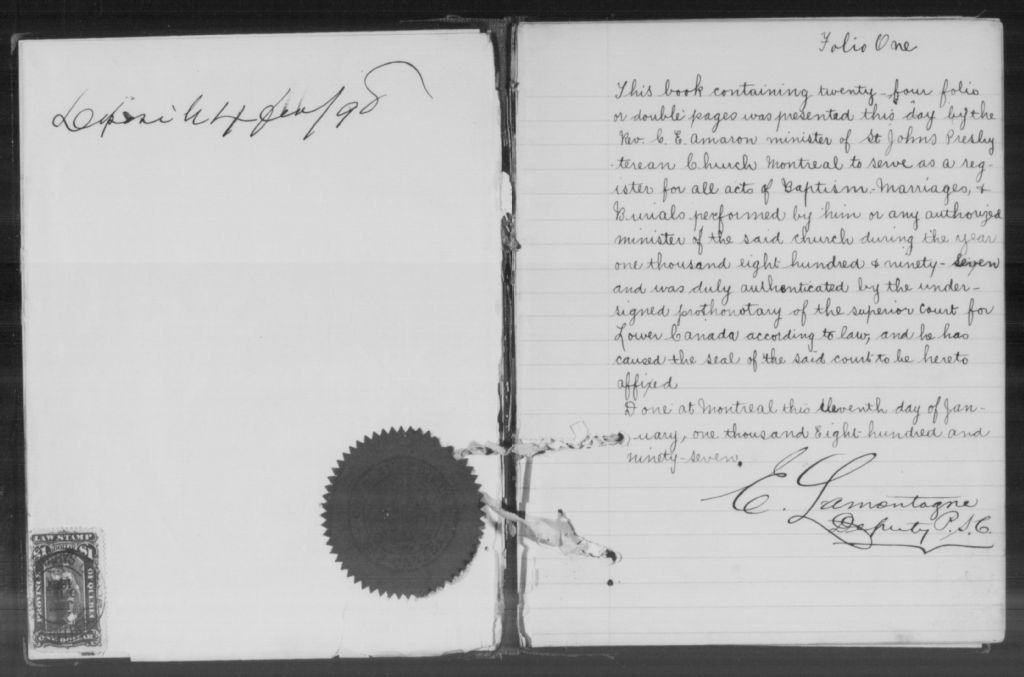 4 /98
LAW STAMP
$1 DOLLAR $1
PROVINCE OF QUEBEC
ONE DOLLAR
Folio One
This book containing twenty-four folio
or double pages was presented this day by the
Rev. C. E. Amaron minister of St Johns Presby
-terean Church Montreal to serve as a reg-
ister for all acts of Baptism, Marriages, &
Burials performed by him or any authorized
minister of the said church during the year
one thousand eight hundred & ninety-seven
and was duly authenticated by the under-
signed prothonotary of the superior court for
Lower Canada according to law, and he has
caused the seal of the said court to be hereto
affixed
Done at Montreal this eleventh day of Jan-
uary, one thousand Eight hundred and
ninety-seven.
E. Lamontagne
Deputy P.S.C.